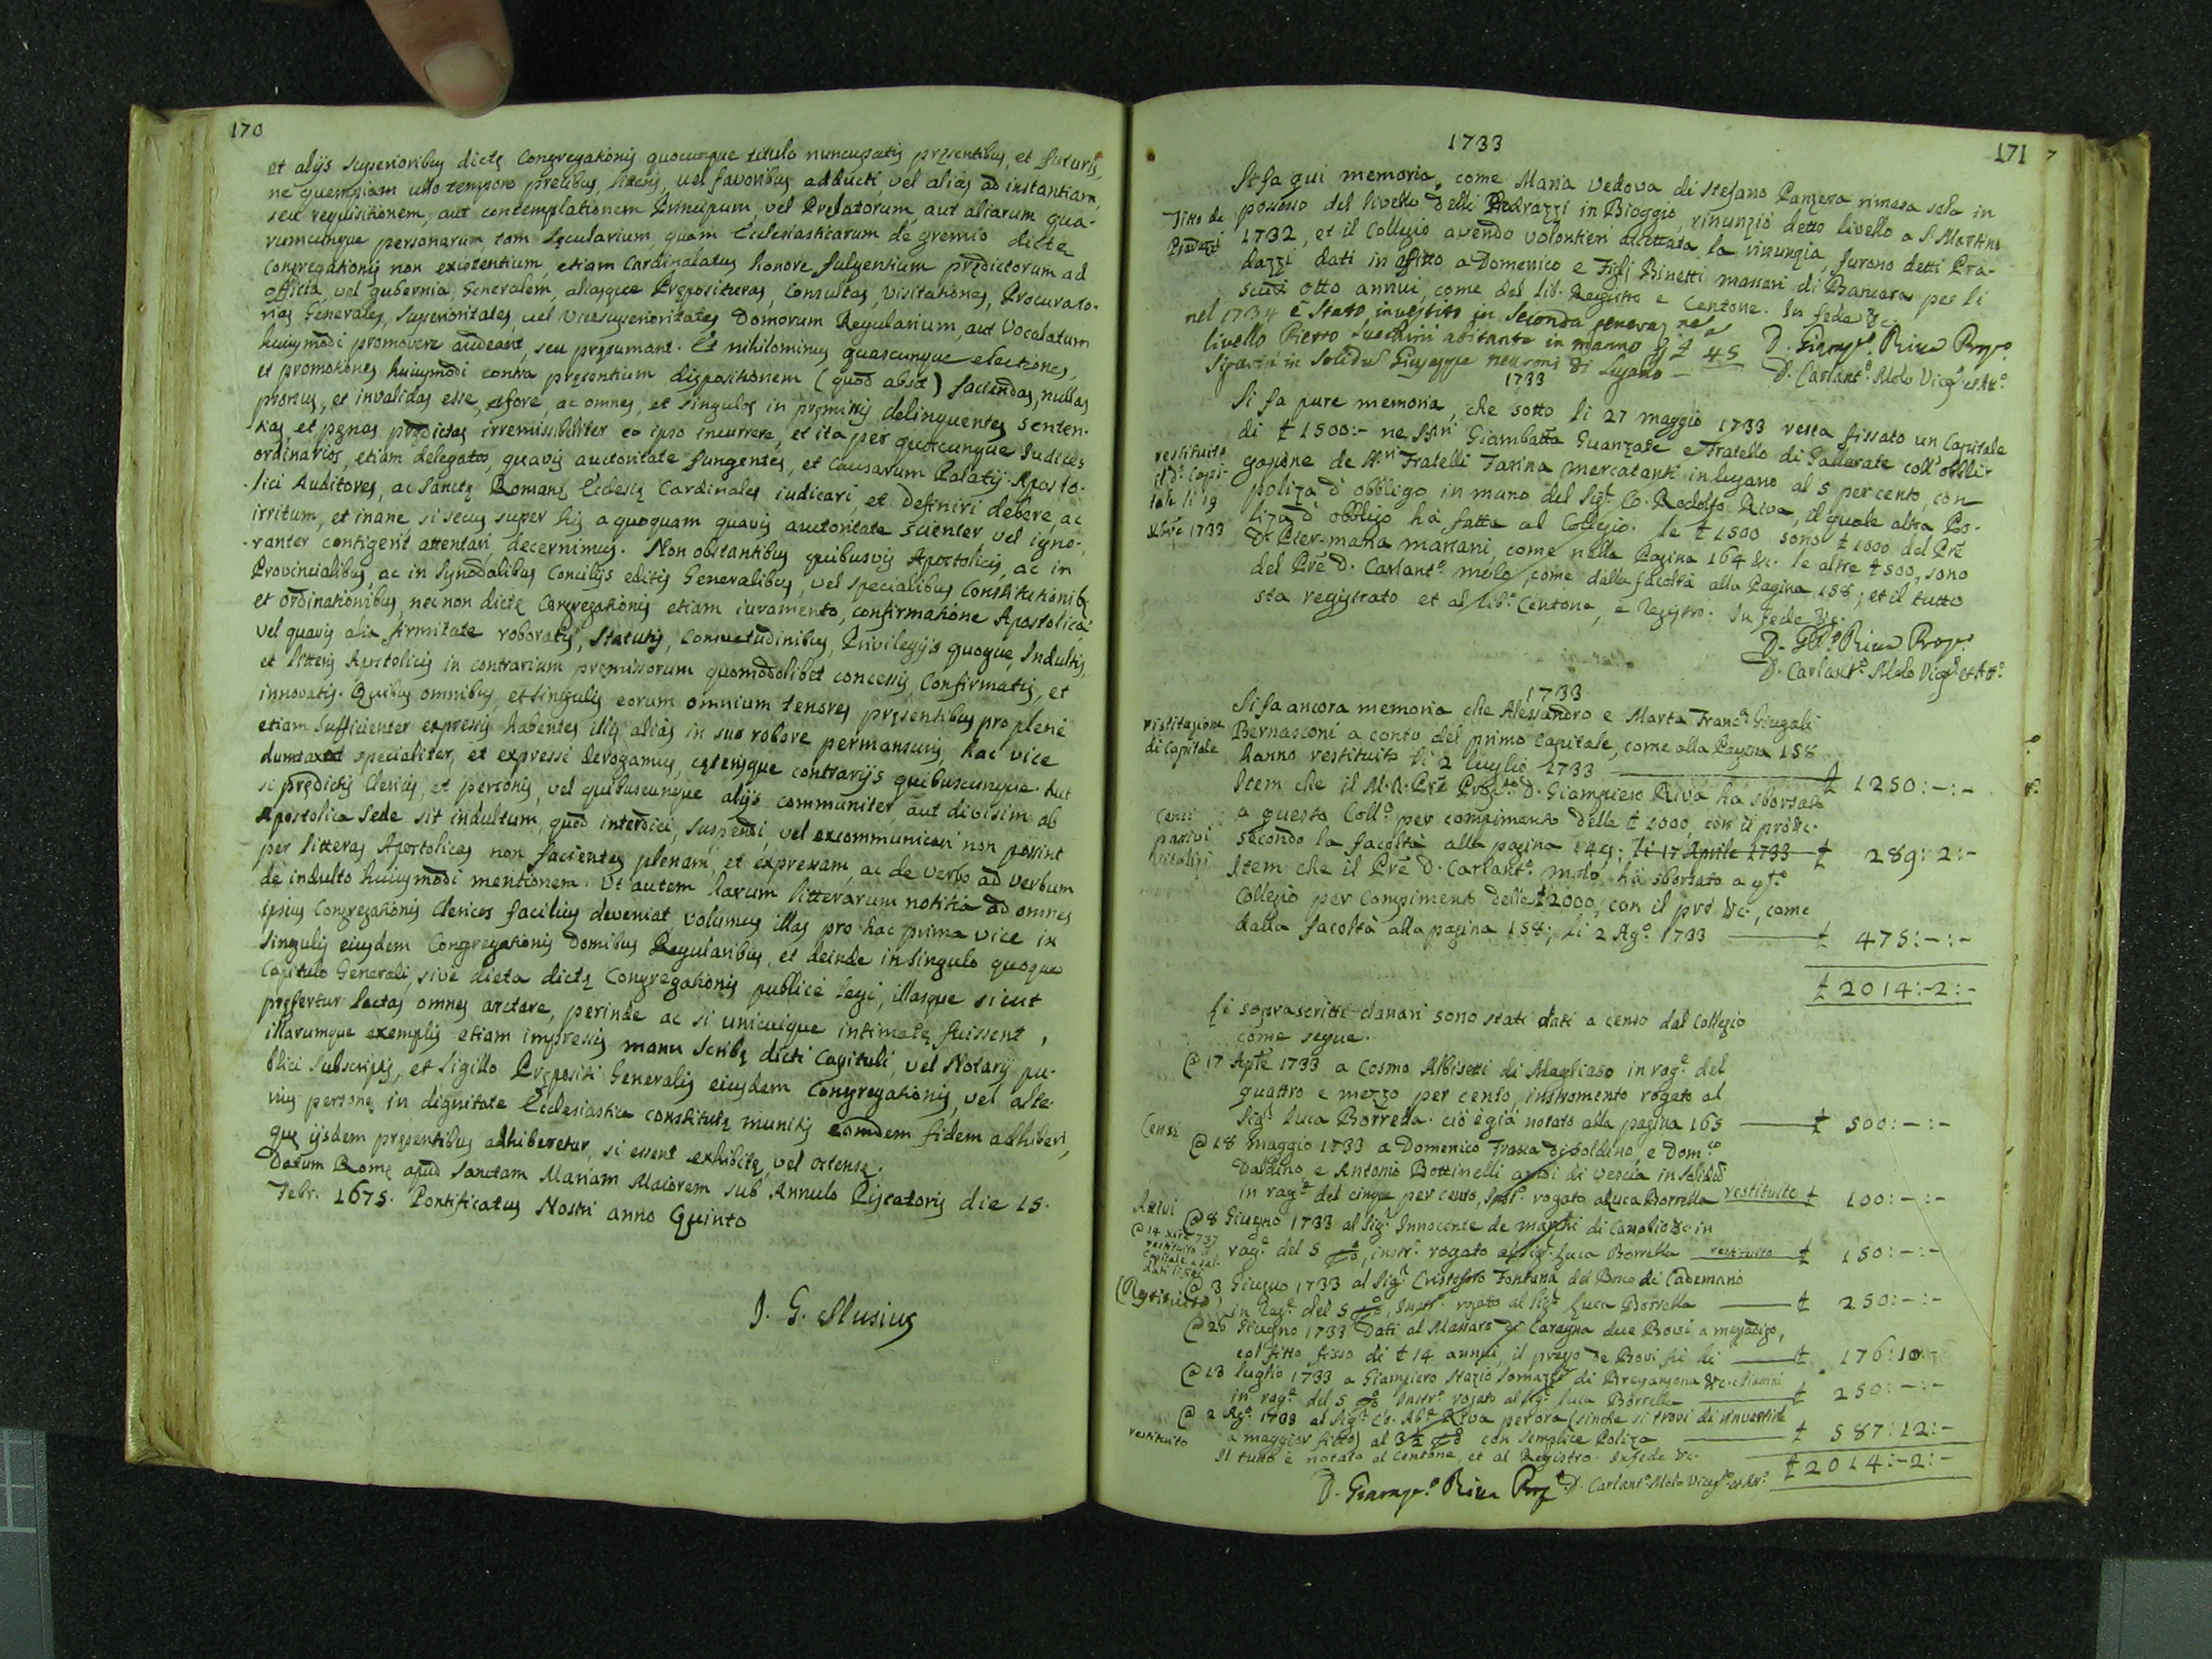 170
et alijs superioribus dictę Congregationis quocunque titulo nuncupatis pręsentibus, et futuris,
ne quempiam ullo tempore precibus, literis, vel favoribus adducti vel aliàs ad instantiam,
seu requisitionem, aut contemplationem Principum, vel Prelatorum, aut aliarum qua-
rumcunque personarum, tam Sęcularium, quam Ecclesiasticarum de gremio dictę
Congregationis non existentium, etiam Cardinalatus honore fulgentium prędictorum ad
officia, vel gubernia, Generalem, aliasque Pręposituras, Consultas, Visitationes, Procurato-
rias Generales, Superioritates, vel Vicesuperioritates Domorum Regularium, aut Vocalatum
huiusmodi promovere audeant, seu pręsumant. Et nihilominus quascunque electiones,
et promotiones huiusmodi contra pręsentium dispositionem (quod absit) faciendas, nullas
prorsus, et invalidas esse, et fore, ac omnes, et singulos in pręmissis delinquentes senten-
tias, et pęnas prędictas irremissibiliter eo ipso incurrere, et ita per quoscunque Iudices
ordinarios, etiam delegatos, quavis auctoritate fungentes, et Causarum Palatij Aposto-
lici Auditores, ac Sanctę Romanę Ecclesię Cardinales iudicari, et definiri debere, ac
irritum, et inane si secus super his a quoquam quavis auctoritate scienter vel igno-
ranter contigerit attentari, decernimus. Non obstantibus quibusvis Apostolicis, ac in
Provincialibus, ac in Synodalibus Concilijs editis Generalibus, vel specialibus Constitutionib.
et ordinationibus, nec non dictę Congregationis etiam iuramento, confirmatione Apostolica
vel quavis alia firmitate roboratis, Statutis, Consuetudinibus, Privilegijs quoque, Indultis,
et litteris Apostolicis in contrarium pręmissorum quomodolibet concessis, Confirmatis, et
innovatis. Quibus omnibus, et singulis eorum omnium tenores pręsentibus pro plenè
etiam sufficienter expressis habentes illis aliàs in suo robore permansuris, hac vice
dumtaxat specialiter, et expressè derogamus, cęterisque contrarijs quibuscunque. Aut
si prędictis Clericis, et personis, vel quibuscunque alijs communiter, aut divisim ab
Apostolica Sede sit indultum, quod interdici, suspendi, vel excommunicari non possint
per litteras Apostolicas non facientes plenam, et expressam, ac de verbo ad verbum
de indulto huiusmodi mentionem. Ut autem harum litterarum notitia ad omnes
ipsius Congregationis Clericos facilius deveniat, volumus illas pro hac prima vice in
singulis eiusdem Congregationis Domibus Regularibus, et deinde in singulo quoque
Capitulo Generali, sivè dieta dictę Congregationis publicè legi, illasque sicut
pręfertur lectas omnes arctare, perinde ac si unicuique intimatę fuissent,
illarumque exemplis etiam impressis manu Scribę dicti Capituli, vel Notarij pu-
blici subscriptis, et sigillo Prępositi Generalis eiusdem Congregationis, vel alte-
rius personę in dignitate Ecclesiastica constitutę munitis eamdem fidem adhiberi,
quę ijsdem pręsentibus adhiberetur, si essent exhibitę, vel ostensę.
Datum Romę apud Sanctam Mariam Maiorem sub Annulo Piscatoris die 15.
Febr. 1675. Pontificatus Nostri anno Quinto
J. G. Slusius
171
1733
Si fa qui memoria, come Maria vedova di Stefano Panzera rimasa sola in
Fitto de Pradazzi
possesso del livello delli Pradazzi in Bioggio, rinunziò detto livello a S. Martino
1732, et il Collegio avendo volontieri accettata la rinunzia, furono detti Pra-
dazzi dati in affitto a Domenico e Figli Binetti massari di Bancora per li
scudi otto annui, come del lib. Registro e Centone. In fede &c.
nel 1734 è stato investito in seconda
livello Pietro Lucchini abitante in manno £ 45
D. Giamp.º Riva Prop.º
in solidū Giuseppe di Lugano
D. Carlant.º Molo Vicep.º et Att.º
1733
Si fa pure memoria, che sotto li 27 maggio 1733 resta fissato un Capitale
restituito il dº Capi-
tale li 19
Xbre 1733
di £ 1500:- ne SSri Giambatta Guanzate e Fratello di Gallarate coll' obbli-
gazione de SSri Fratelli Farina mercatanti in Lugano al 5 per cento, con
poliza d' obbligo in mano del Sigr Co. Rodolfo Riva, il quale altra Po-
liza d' obbligo hà fatta al Collegio. le £ 1500 sono £ 1000 del Prē
D. Pier-maria mariani, come nella Pagina 164 &c. le altre £ 500, sono
del Prē D. Carlant.º molo, come dalla facoltà alla Pagina 158; et il tutto
sta registrato et al lib.º Centone, e Registro. In fede &c.
D. G. P.º Riva Prop.º
D. Carlant.º Molo Vicep.º et Att.º
1733
Si fa ancora memoria, che Alessandro e Marta Franca Giugali
restituzione
di Capitale
Bernasconi a conto del primo Capitale, come alla Pagina 158
hanno restituito li 2 luglio 1733 £ 1250:-:-
Item che il M.R. Prē D. Giampiero Riva ha sborsato
Censi
passivi
vitalizi
a questo Coll.º per compimento delle £ 1000, con il prò &c.
secondo la facoltà alla pagina 149; li 17 Aprile 1733 £ 289:2:-
Item che il Prē D. Carlant.º molo hà sborsato a qto
Collegio per compimento delle £ 2000, con il prò &c., come
dalla facoltà alla pagina 158; li 2 Ag.º 1733 £ 475:-:-
£ 2014:-2:-
Li soprascritti danari sono stati dati a censo dal Collegio
come segue.
@ 17 Aple 1733 a Cosmo Albisetti di Magliaso in rag.e del
quattro e mezzo per cento, instromento rogato al
Sigr Luca Borrella. ciò è già notato alla pagina 165 £ 500:-:-
Censi
Attivi
@ 18 maggio 1733 a Domenico Frasca di Soldino, e Dom.co
Daldino, e Antonio Bottinelli di vescia in solidū
in rag.e del cinque per cento, Instr.º rogato a Luca Borrella restituito £ 100:-:-
@ 8 Giugno 1733 al Sigr Innocente de marchi di Canobio &c. in
restituito il
Capitale
rag.e del 5 , instr.º rogato al Sigr Luca Borrella restituito £ 150:-:-
(Restituito)
@ 3 Giugno 1733 al Sigr Cristoforo Fontana del Bosco di Cademario
in Rag.e del 5 , Instr.º rogato al Sigr Luca Borrella £ 250:-:-
@ 26 Giugno 1733 Dati al Massaro di Caragna due Bovi a mezzadizo,
col fitto fisso di £ 14 annui, il prezzo de Bovi fu di £ 176:10:-
@ 13 luglio 1733 a Giampiero Stazio Somazzi di Breganzona &c.
in rag.e del 5 Instr.º rogato al Sigr Luca Borrella £ 250:-:-
restituito
@ 2 Ag.º 1733 al Sigr Co. Riva per ora (sinche si trovi di rinvestire
a maggior fitto) al 3½ con semplice Poliza £ 587:12:-
Il tutto è notato al Centone, et al Registro. In fede &c. £ 2014:-2:-
D. Giamp.º Riva Prop.º D. Carlant.º Molo Vicep.º et Att.º